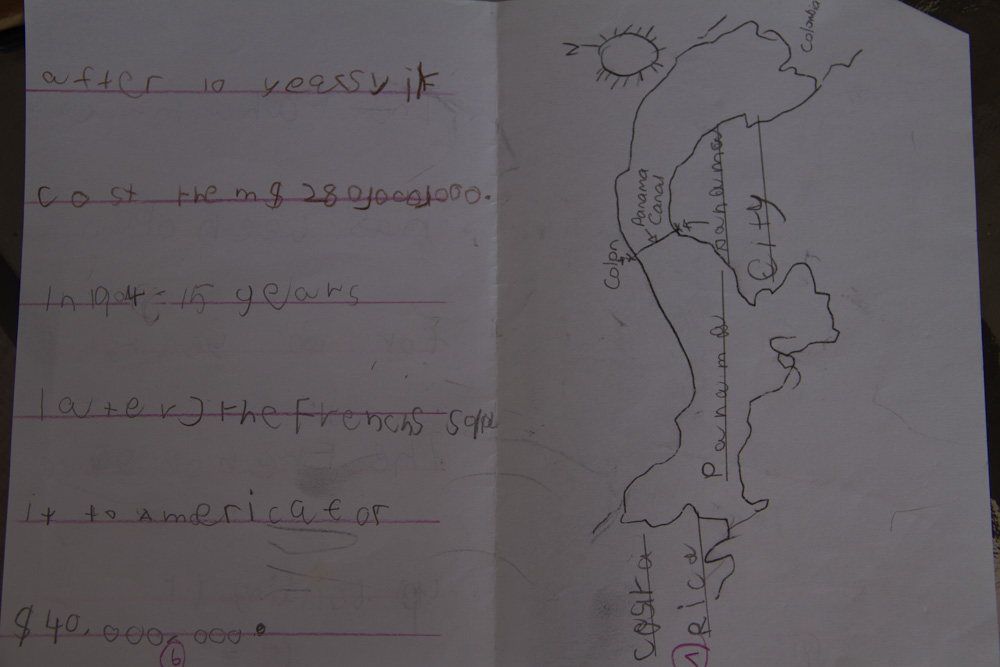 after 10 years, it
cost them $ 280,000,000.
In 1904 = 15 years
later, the French
it to America for
$40,000,000.
6
N
Colombia
Panama
Canal
Colon
Panama
City
Panama
Costa
Rica
7